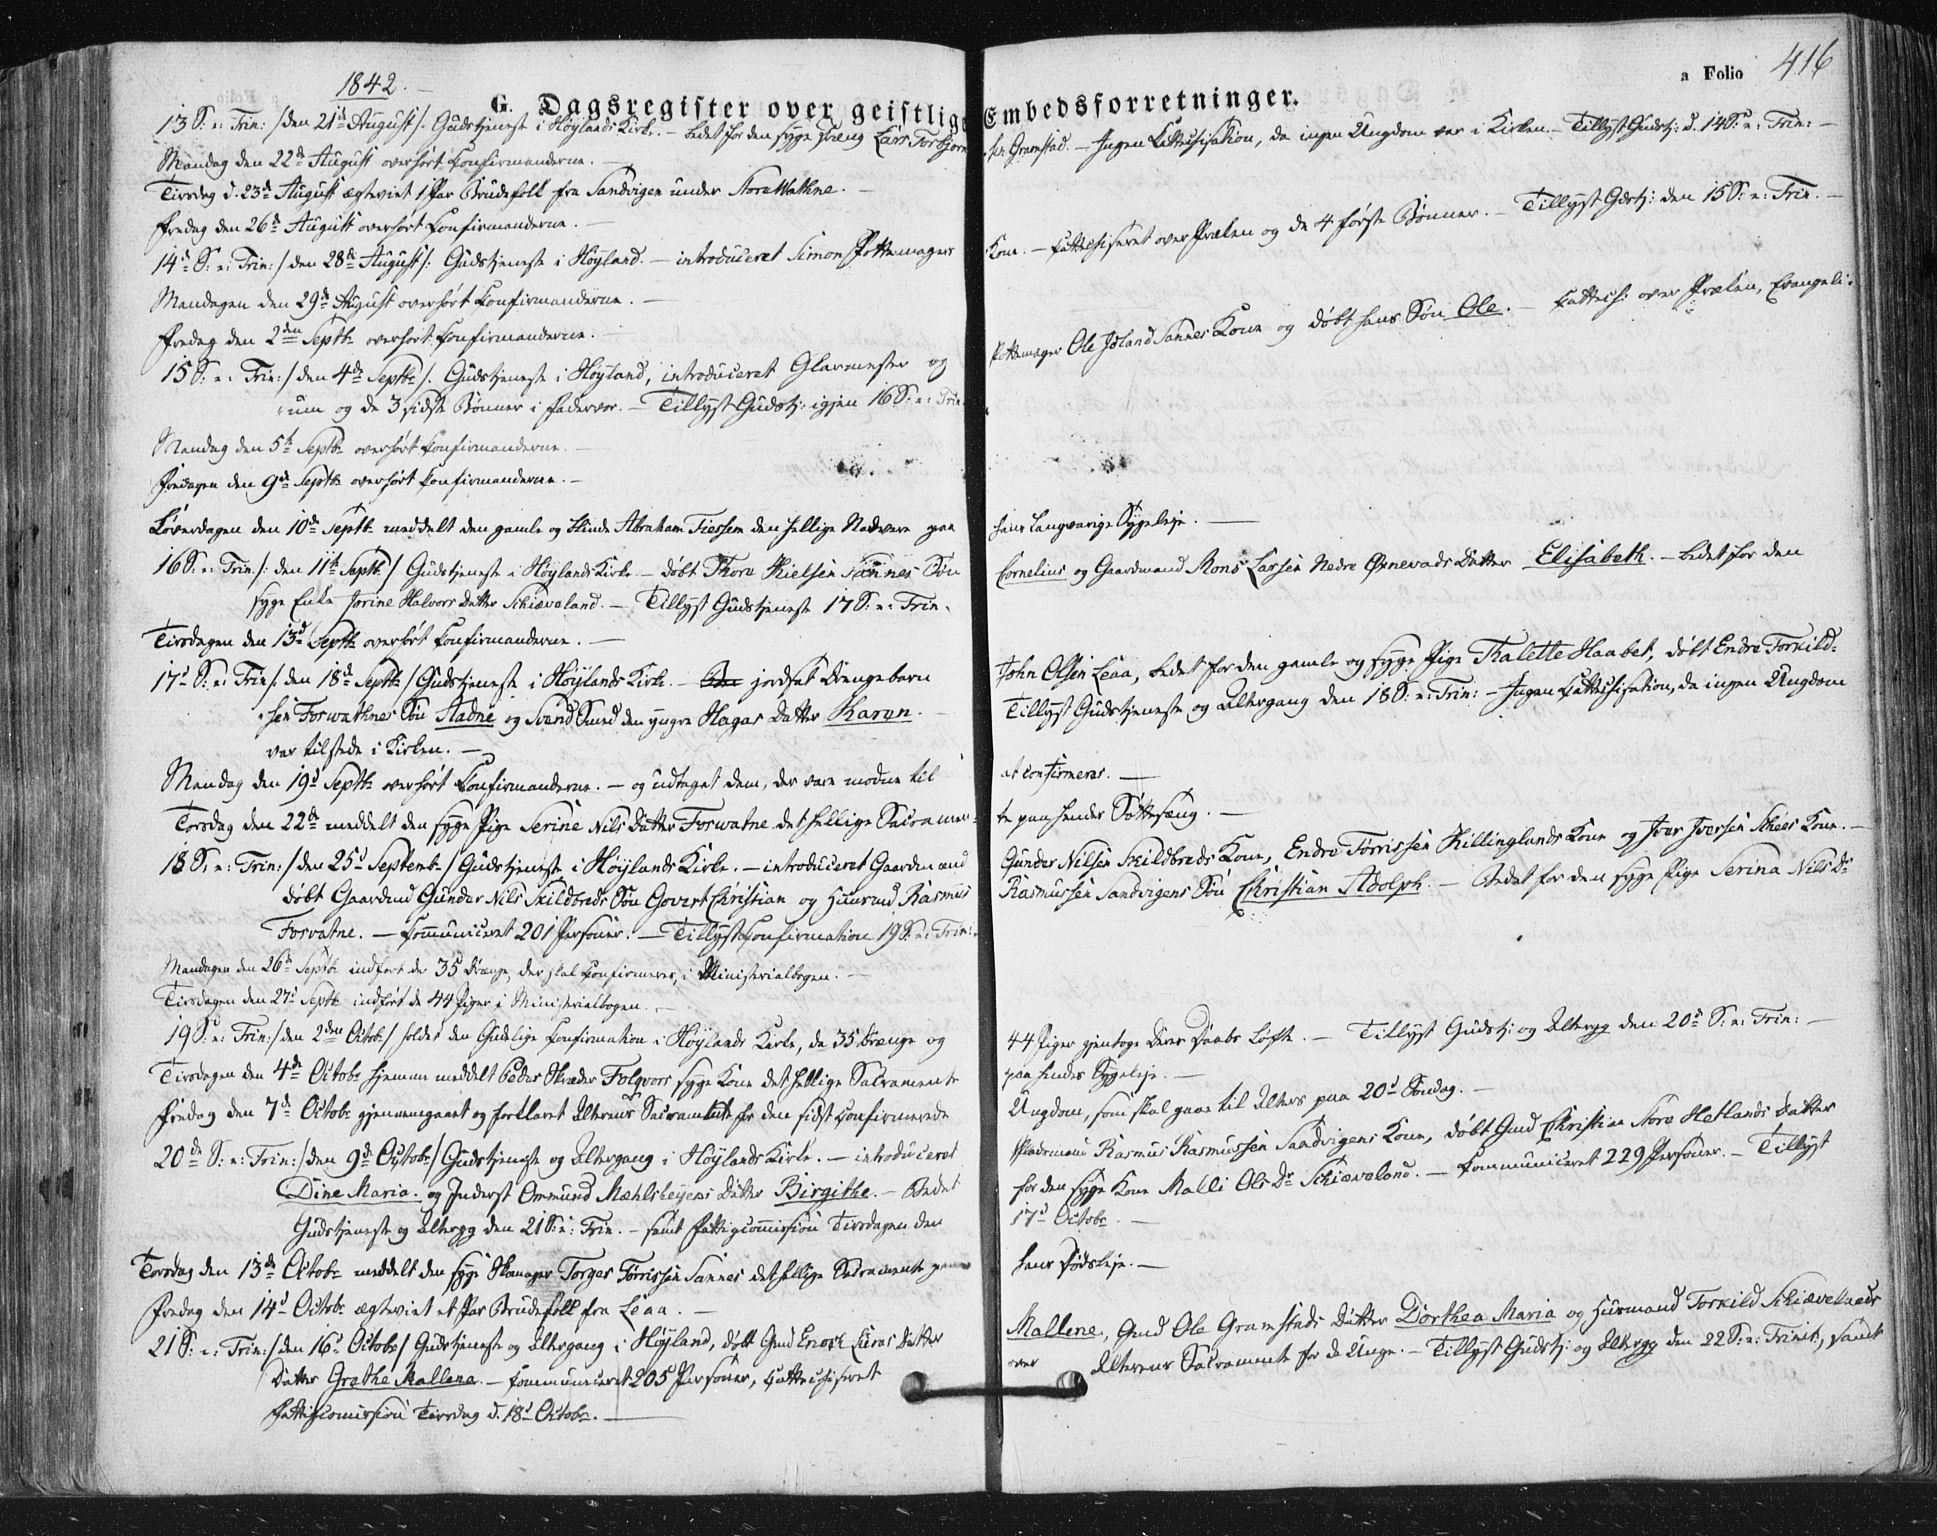 1842.
G. Dagsregister over geistlige Embedsforretninger.
a Folio 416
13 S: e: Trin: /: den 21de August /: Gudstjeneste i Høylands Kirke. – bedet for den syge Dreng Lars Torbjørn-
sen Gramstad. – Ingen Cattechisation, da ingen Ungdom var i Kirken. – Tillyst Gudstj: d. 14 S: e: Trin: –
Mandag den 22de August overhørt Confirmanderne. –
Tirsdag d. 23de August ægteviet 1 Par Brudefolk fra Sandvigen under Store Wathne. –
Fredag den 26de August overhørt Confirmanderne. –
14de S: e: Trin: /: den 28de August /: Gudstjeneste i Høyland. – introduceret Simon Pottemagers
Kone. – Cattechiseret over Præken og de 4 første Bønner. – Tillyst Gdstj: den 15 S: e: Trin. –
Mandagen den 29de August overhørt Confirmanderne. –
Fredag den 2den Septbr overhørt Confirmanderne. –
15 S: e: Trin: / den 4de Septbr /. Gudstjeneste i Høyland, introduceret Glarmester og
Pottemager Ole Island Sannes Kone og døbt hans Søn Ole. – Cattech: over Præken, Evangeli-
um og de 3 sidste Bønner i Fadervor. – Tillyst Gudstj: igjen 16 S: e: Trin.
Mandag den 5te Septbr overhørt Confirmanderne. –
Fredagen den 9de Septbr overhørt Confirmanderne. –
Løverdagen den 10de Septbr meddelt den gamle og blinde Abraham Tiessem den hellige Nadvere paa
hans langvarige Sygeleje. –
16 S: e: Trin /: den 11te Septb / Gudstjeneste i Høylands Kirke – døbt Thore Kielsen Sannes Søn
Cornelius og Gaardmand Mons Larsen Nedre Ørnevads Datter Elisabeth. – bedet for den
syge Enke Jorine Halvors Datter Schiæveland. – Tillyst Gudstjeneste 17 S: e: Trin.
Tirsdagen den 13de Septbr overhørt Confirmanderne. –
17de S: e: Trin /: den 18de Septbr / Gudstjeneste i Høylands Kirke. – jordsat Drengebarn
John Olsen Leaa, bedet for den gamle og syge Pige Thalette Haabet, døbt Endre Torkild-
sen Foswathnes Søn Aadne og Svend Smed den yngre Hagas Datter Karen. –
Tillyst Gudstjeneste og Altergang den 18 S: e: Trin: – Ingen Cattechisation, da ingen Ungdom
var tilstede i Kirken. –
Mandag den 19de Septbr overhørt Confirmanderne. – og udtaget dem, der vare modne til
at confirmeres. –
Torsdag den 22de meddelt den syge Pige Serine Nils Datter Foswatne det hellige Sacramen-
te paa hendes Sottesæng. –
18 S: e: Trin: / den 25de Septemb / Gudstjeneste i Høylands Kirke. – introduceret Gaardmand
Gunder Nilsen Skildbreds Kone, Endre Tørrissen Killinglands Kone og Iver Iversen Skeies Kone. –
døbt Gaardmd Gunder Nils Skildbreds Søn Govert Christian og Huusmd Rasmus
Rasmussen Sandvigens Søn Christian Adolph. – Bedet for den syge Pige Serina Nils Dr
Fosvatne. – Communiceret 201 Personer. – Tillyst Confirmation 19 S: e: Trin:
Mandagen den 26de Septbr indført de 35 Drenge, der skal Confirmeres, i Ministerialbogen. –
Tirsdagen den 27de Septbr indført de 44 Piger i Ministerialbogen. –
19 S: e: Trin: / den 2den Octob / holdet den Gudelige Confirmation i Høylands Kirke, da 35 Drenge og
44 Piger gjentoge deres Daabs Løfte. – Tillyst Gudstj: og Altergg den 20de S: e: Trin: –
Tirsdagen den 4de Octobr hjemme meddelt Peder Skræder Folqvors syge Kone det hellige Sacramente
paa hendes Sygeleje. –
Fredag den 7de Octobr gjennemgaaet og forklaret Alterens Sacramente for den sidst confirmerede
Ungdom, som skal gaae til Alters paa 20de Søndag. –
20de S: e: Trin: / den 9de Octob / Gudstjeneste og Altergang i Høylands Kirke. – introduceret
Rasmus Rasmussen Sandvigens Kone, døbt Gmd Christian Store Hetlands Datter
Dine Maria. og Inderst Ommund Mæhlsheyens Datter Birgithe. – Bedet
for den syge Kone Malli Ols Dr Schiæveland. – Communiceret 229 Personer. – Tillyst
Gudstjeneste og Altergg den 21 S: e: Trin. – samt Fattigcommission Tirsdagen den
17de Octobr –
Torsdag den 13de Octobr meddelt den syge Skomager Torges Tørrissen Sannes det hellige Sacramente paa
hans Dødsleje. –
Fredag den 14de Octobr ægteviet et Par Brudefolk fra Leaa. –
21 S: e: Trin: / den 16de Octobr / Gudstjeneste og Altergang i Høyland, døbt Gmd Datter
Mallene, Gmd Ole Gramstads Datter Dorthea Maria og Huusmand Torkild Schiævelands
Datter Grethe Mallena. – Communiceret 205 Personer, Cattechiseret
over Alterens Sacramente for de Unge. – Tillyst Gudstj: og Altergg den 22 S: e: Trinit:, samt
Fattigcomission Tirsdag d. 18de Octobr. –